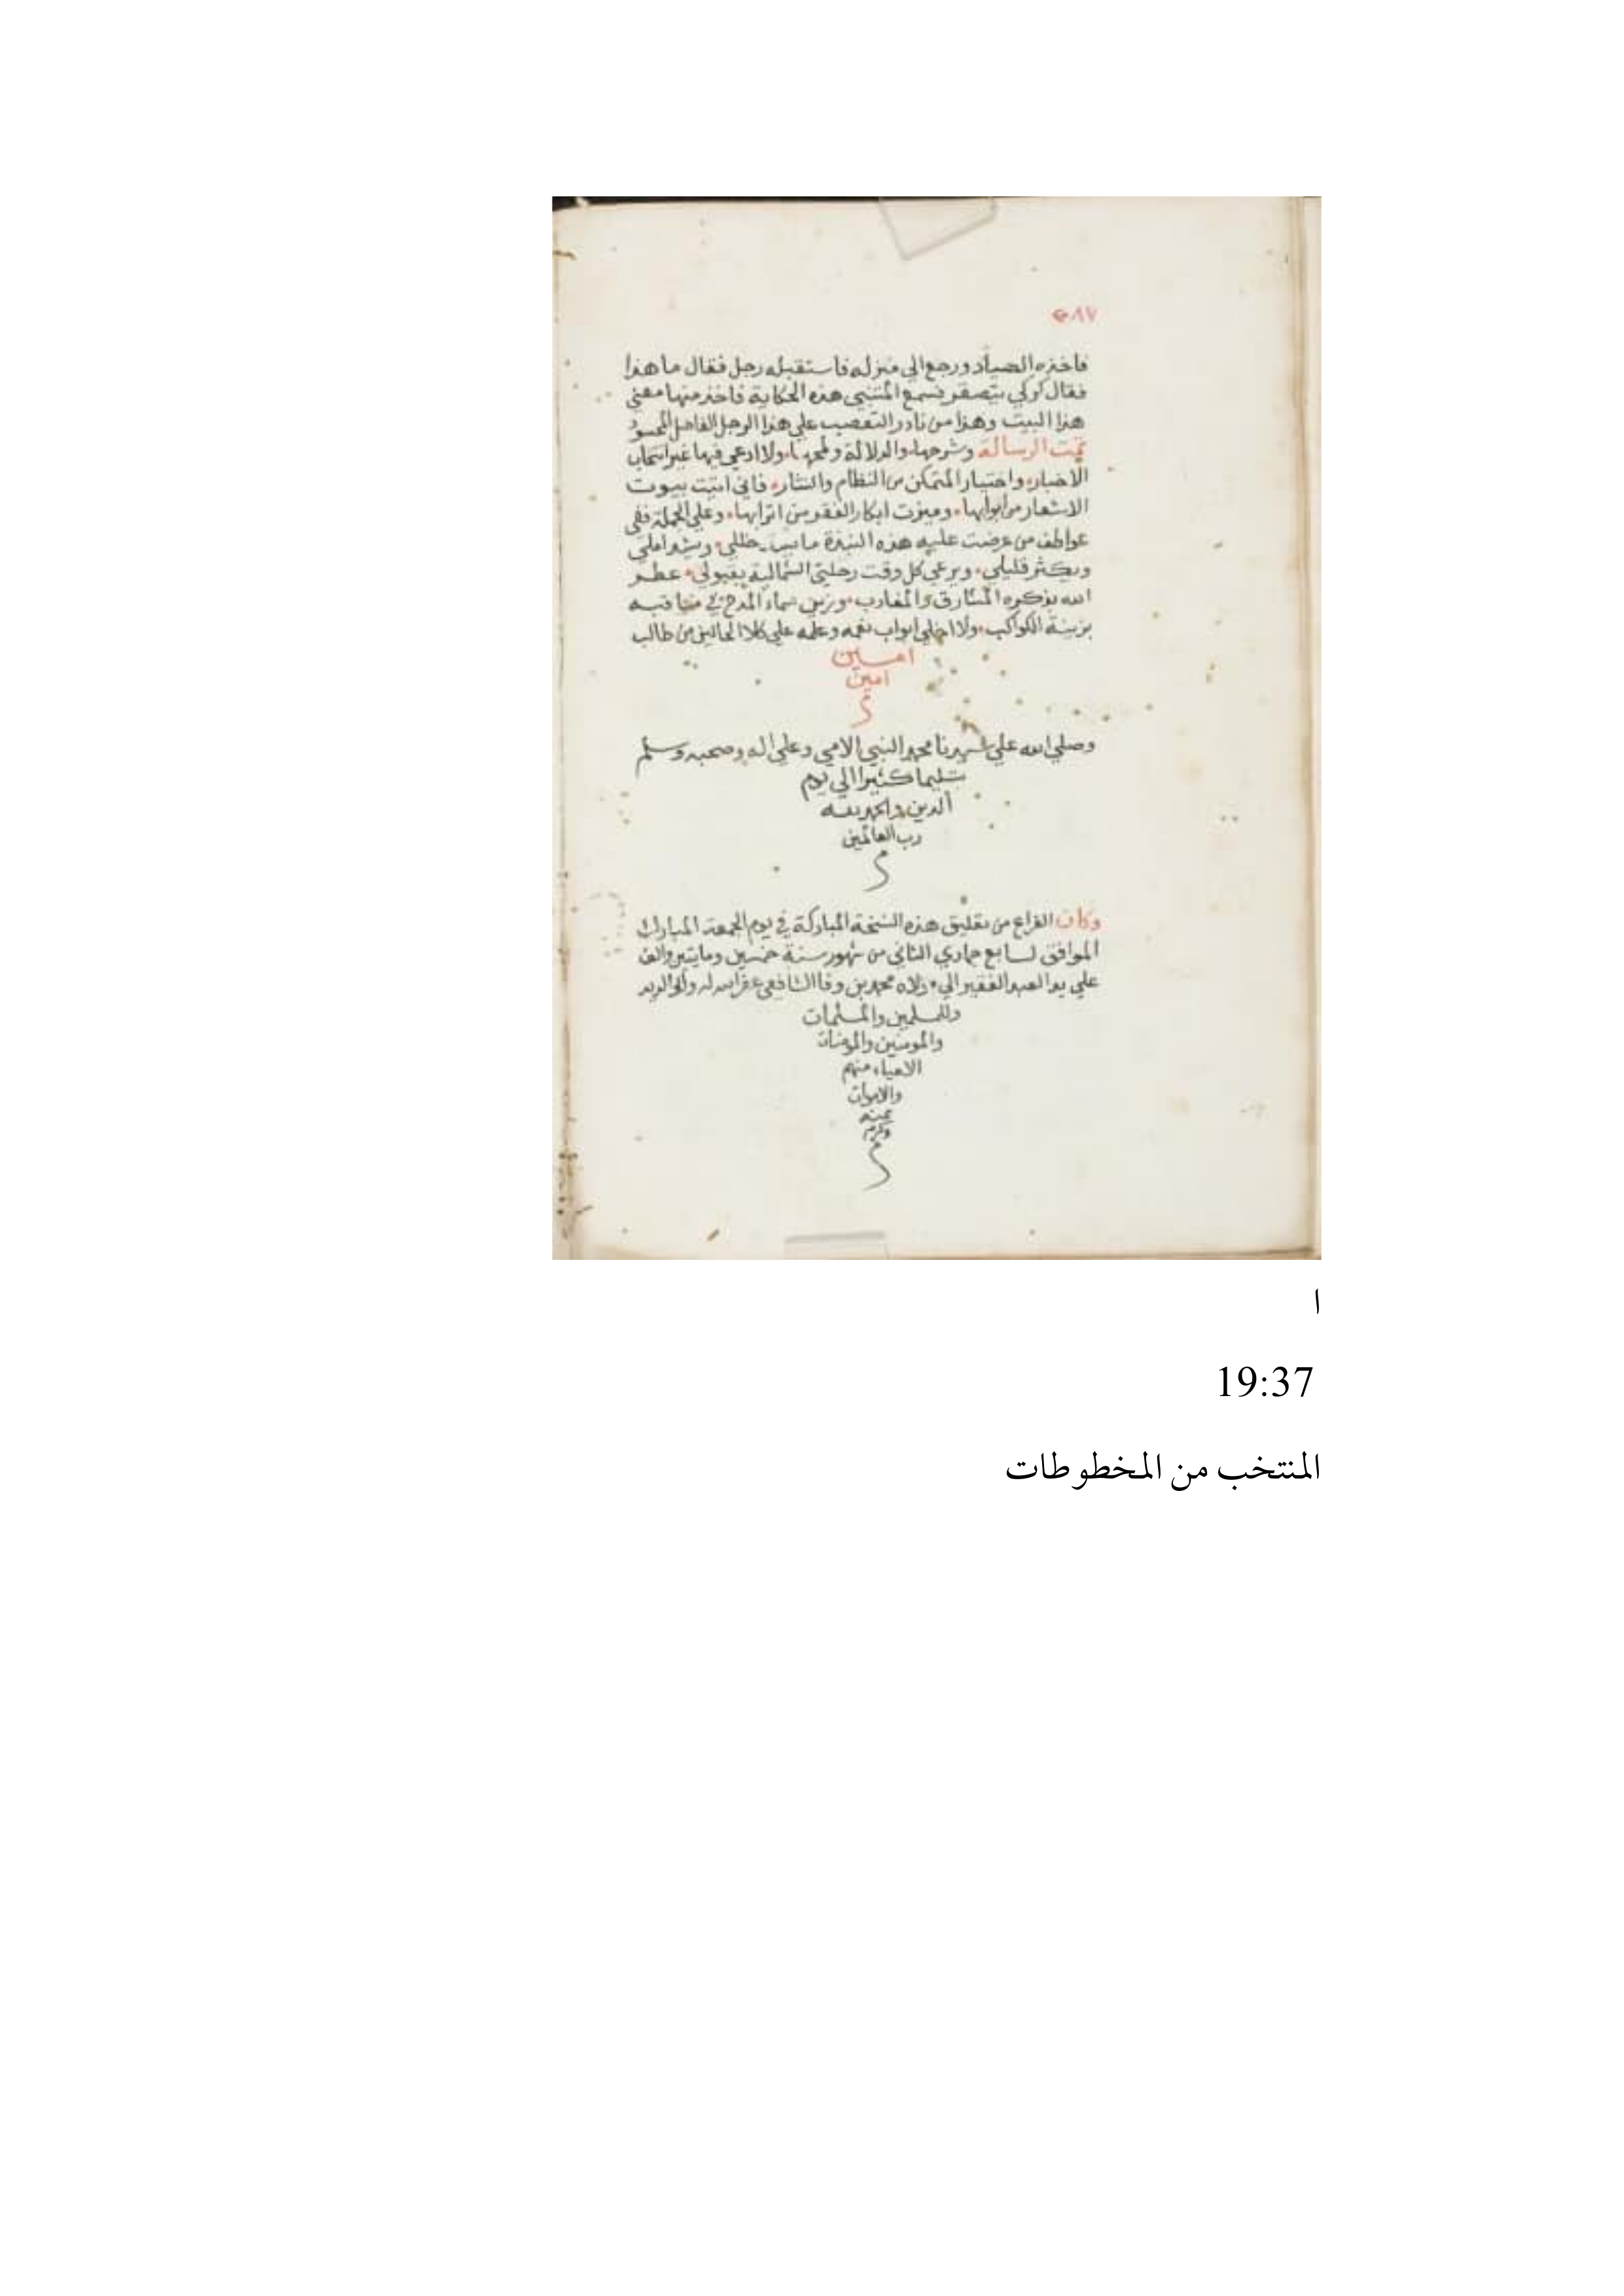 ٢٨٧
فاخذه الصياد ورجع الي منزله فاستقبله رجل فقال ما هذا
فقال كركي يتصقر فسمع المتنبي هذه الحكاية فاخذ منها معني
هذا البيت وهذا من نادر التعصب علي هذا الرجل الفاضل المحسود
تمت الرسالة وشرحها والدلالة ولا ادعي فيها غير انتخاب
الاخبار واختيار المتمكن من النظام والنثار فاني اتيت بيوت
الاشعار من ابوابها وميزت ابكار الفقر من اترابها وعلي الجملة ففي
عواطف من عرضت عليه هذه النبذة ما خللي املي
ويكثر قليلي ويرعي كل وقت رحلتي الشمالية بقبولي عطر
الله بذكره المشارق والمغارب وزين سماء المدح في مناقبه
بزينة الكواكب ولا اخلي ابواب نعمه وعلمه علي كلا الحالين من طالب
امين
امين
وصلي الله علي سيدنا محمد النبي الامي وعلي اله وصحبه وسلم
تسليما كثيرا الي يوم
الدين والحمد لله
رب العالمين
وكان الفراغ من تعليق هذه النسخة المباركة في يوم الجمعة المبارك
الموافق لسابع جمادي الثاني من شهور سنة خمسين ومايتين والف
علي يد العبد الفقير الي مولاه محمد بن وفا الشافعي غفر الله له ولوالديه
وللمسلمين والمسلمات
والمومنين والمومنات
الاحياء منهم
والاموات
بمنه
وكرمه
ا
19:37
المنتخب من المخطوطات